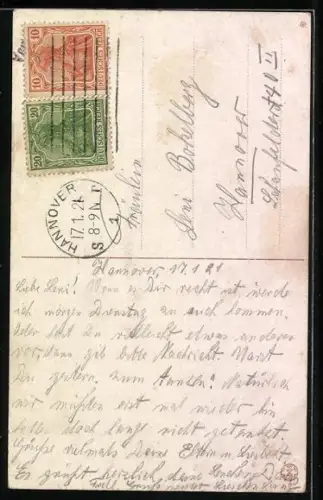 10
DEUTSCHES REICH
10
20
DEUTSCHES REICH
20
HANNOVER
17.1.21
S 8-9 N
1
Fräulein
Leni Bokelberg
Hannover
40 III
Hannover, 17.1.21
Liebe Leni! Wenn es Dir recht ist, werde
ich morgen Dienstag zu euch kommen.
Oder hast Du vielleicht etwas anderes
vor, dann gib bitte Nachricht. Warst
Du gestern zum Natürlich
wir müssen erst mal wieder hin
doch lange nicht getanzt
Grüsse vielmals Deine Eltern u.
Es grüßt herzlich deine
Gruss